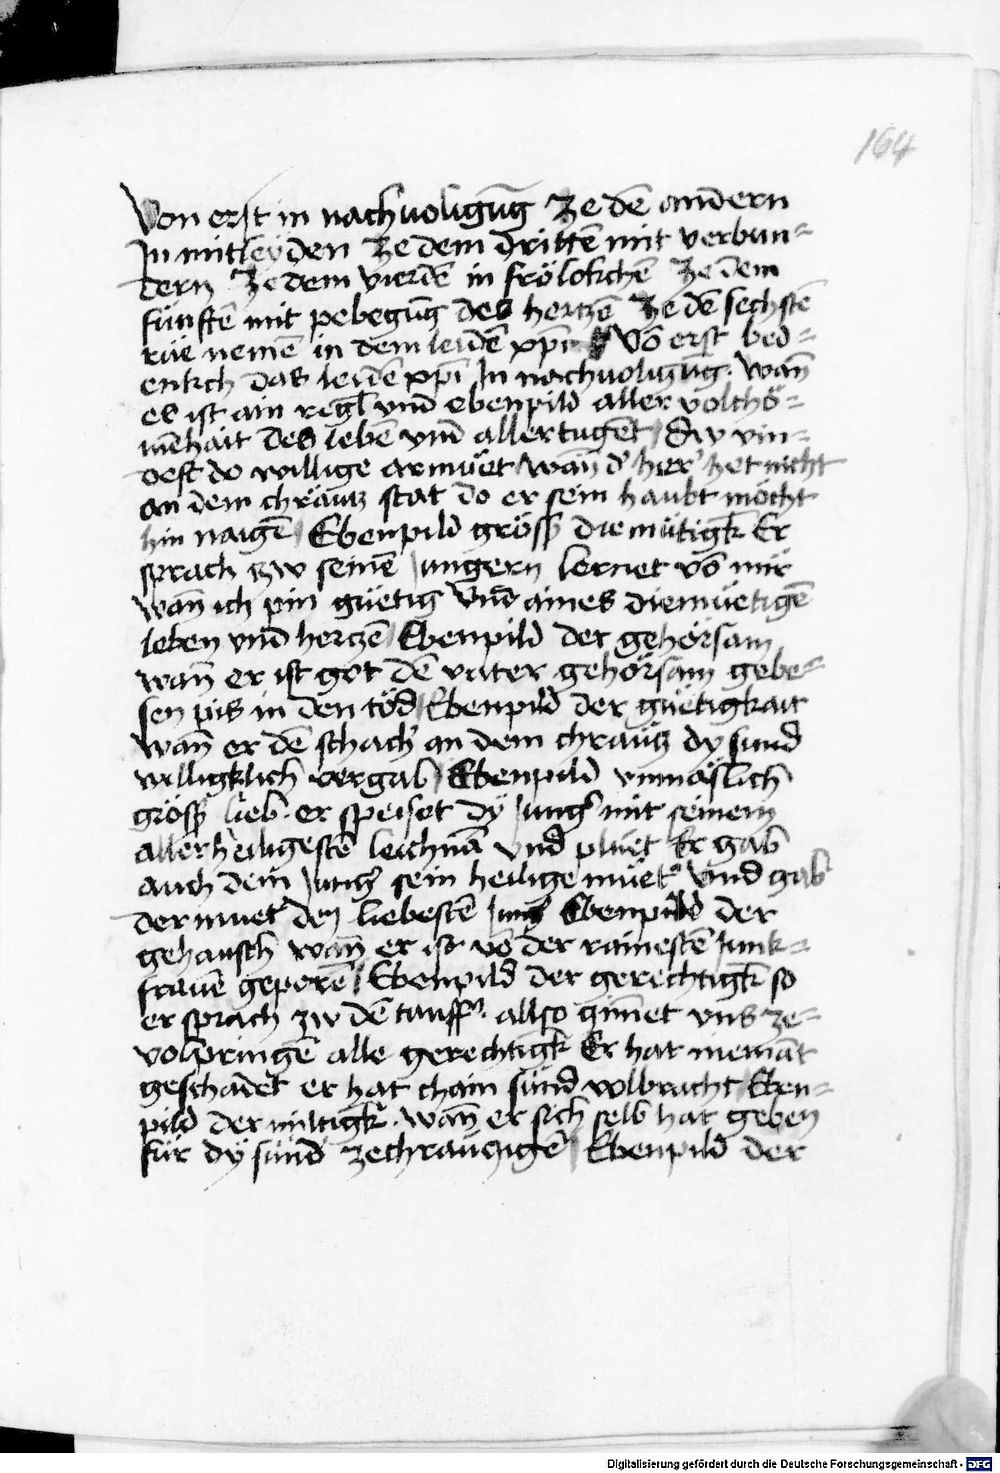 164
Von erst in nachuoligūg Ze dē andern
In mitleÿden Ze dem drittē mit verbun=
dern Ze dem vierdē in frölokchē Ze dem
fünftē mit pebegūg des hertzē Ze dē sechstē
rüe nemē in dem leidē xp̄i Vō erst bed=
enkch das leidē xp̄i In nachuoligūg. wan̄
es ist ain regl vnd ebenpild aller volchö=
mēhait des lebē vnd aller tugēt Aw vin=
dest do willige armüet wan̄ d' her' het nicht
an dem chräwtz stat do er sein haubt möcht
hin naigē Ebenpild gröss diemütigk̄ Er
sprach zw seinē Jungern lernet vō mir
wan̄ ich pin güetig Vnd aines diemüetigē
leben vnd hertzē Ebenpild der gehörsam
wan̄ er ist got dē vater gehörsam gebe=
sen pis in den töd Ebenpild der güetigkait
wan̄ er dē schach' an dem chräutz dy sund
willigklich vergab Ebenpild vnmäslich
gröss' lieb. er speiset dÿ Jung' mit seinem
allerheiligestē leichnā vnd pluet Er gab
auch dem Jung' sein heilige müet' Vnd gab
der muet' den liebestē Jung' Ebenpild der
gehausch wan̄ er ist vō der rainestē Junk=
frauē geporē Ebenpild der gerechtigk̄ so
er sprach zw dē tauff'. allso gimet vns ze=
volpringē alle gerechtigk̄ Er hat niemāt
geschadet er hat chain sünd volbracht Eben=
pild der miltigk̄. wan̄ er sich selb hat geben
für dÿ sünd' zechräuczigē Ebenpild der
Digitalisierung gefördert durch die Deutsche Forschungsgemeinschaft - DFG